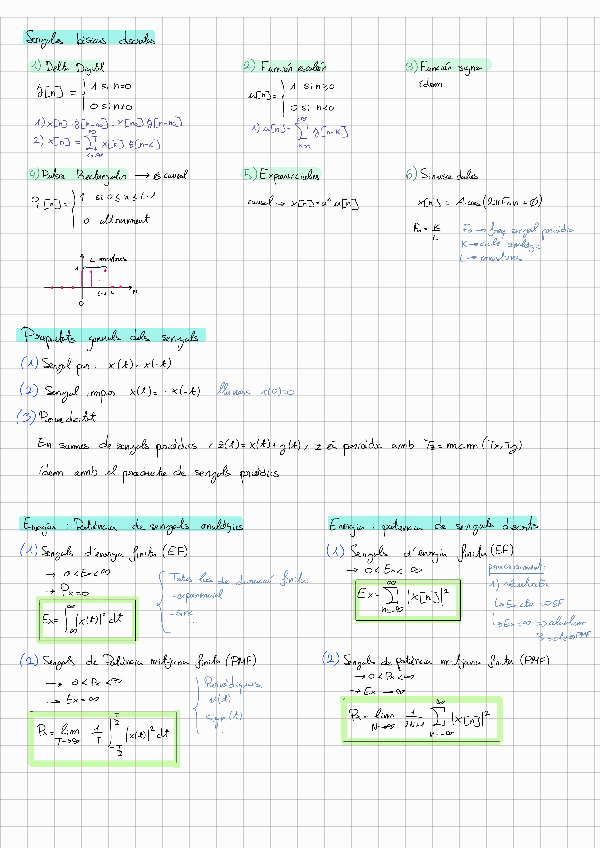 Senyals bàsics discretes
1) Delta Digital
δ[n] = { 1 si n=0
0 si n≠0
1) x[n]·δ[n-n0] = x[n0]·δ[n-n0]
2) x[n] = Σ x[k] δ[n-k]
k=-∞
2) Funció escaló
u[n] = { 1 si n≥0
0 si n<0
1) u[n] = Σ δ[n-k]
3) Funció signe
idem
4) Pols Rectangular → és causal
1 si 0 ≤ n ≤ L-1
0 altrament
L mostres
1
0 L-1 L n
5) Exponencials
causal → x[n] = aⁿ u[n]
6) Sinusoidales
x[n] = A cos(2πF0n + ϕ)
F0 = K/L
F0 → freq senyal periòdic
K → cicle analògic
L → mostres
Propietats generals dels senyals
(1) Senyal par: x(t) = x(-t)
(2) Senyal impar x(t) = -x(-t) llavors x(0)=0
(3) Periodicitat
En sumes de senyals periòdics, z(t) = x(t) + y(t), z és periòdic amb Tz = m.c.m (Tx, Ty)
idem amb el producte de senyals periòdics
Energia i Potència de senyals analògics
(1) Senyals d'energia finita (EF)
→ 0 < Ex < ∞
→ Px = 0
Ex = ∫ |x(t)|² dt
Totes les de duració finita
-exponencial
-sinc
(2) Senyals de Potència mitjana finita (PMF)
→ 0 < Px < ∞
→ Ex = ∞
Px = lim 1/T ∫ |x(t)|² dt
T→∞
Periòdiques
u(t)
sgn(t)
Energia i potència de senyals discrets
(1) Senyals d'energia finita (EF)
→ 0 < Ex < ∞
Ex = Σ |x[n]|²
n=-∞
procediment:
1) calcular Ex
↳ Ex cte ⇒ EF
↳ Ex = ∞ ⇒ calculem
(2) Senyals de potència mitjana finita (PMF)
→ 0 < Px < ∞
→ Ex → ∞
Px = lim 1/2N+1 Σ |x[n]|²
N→∞